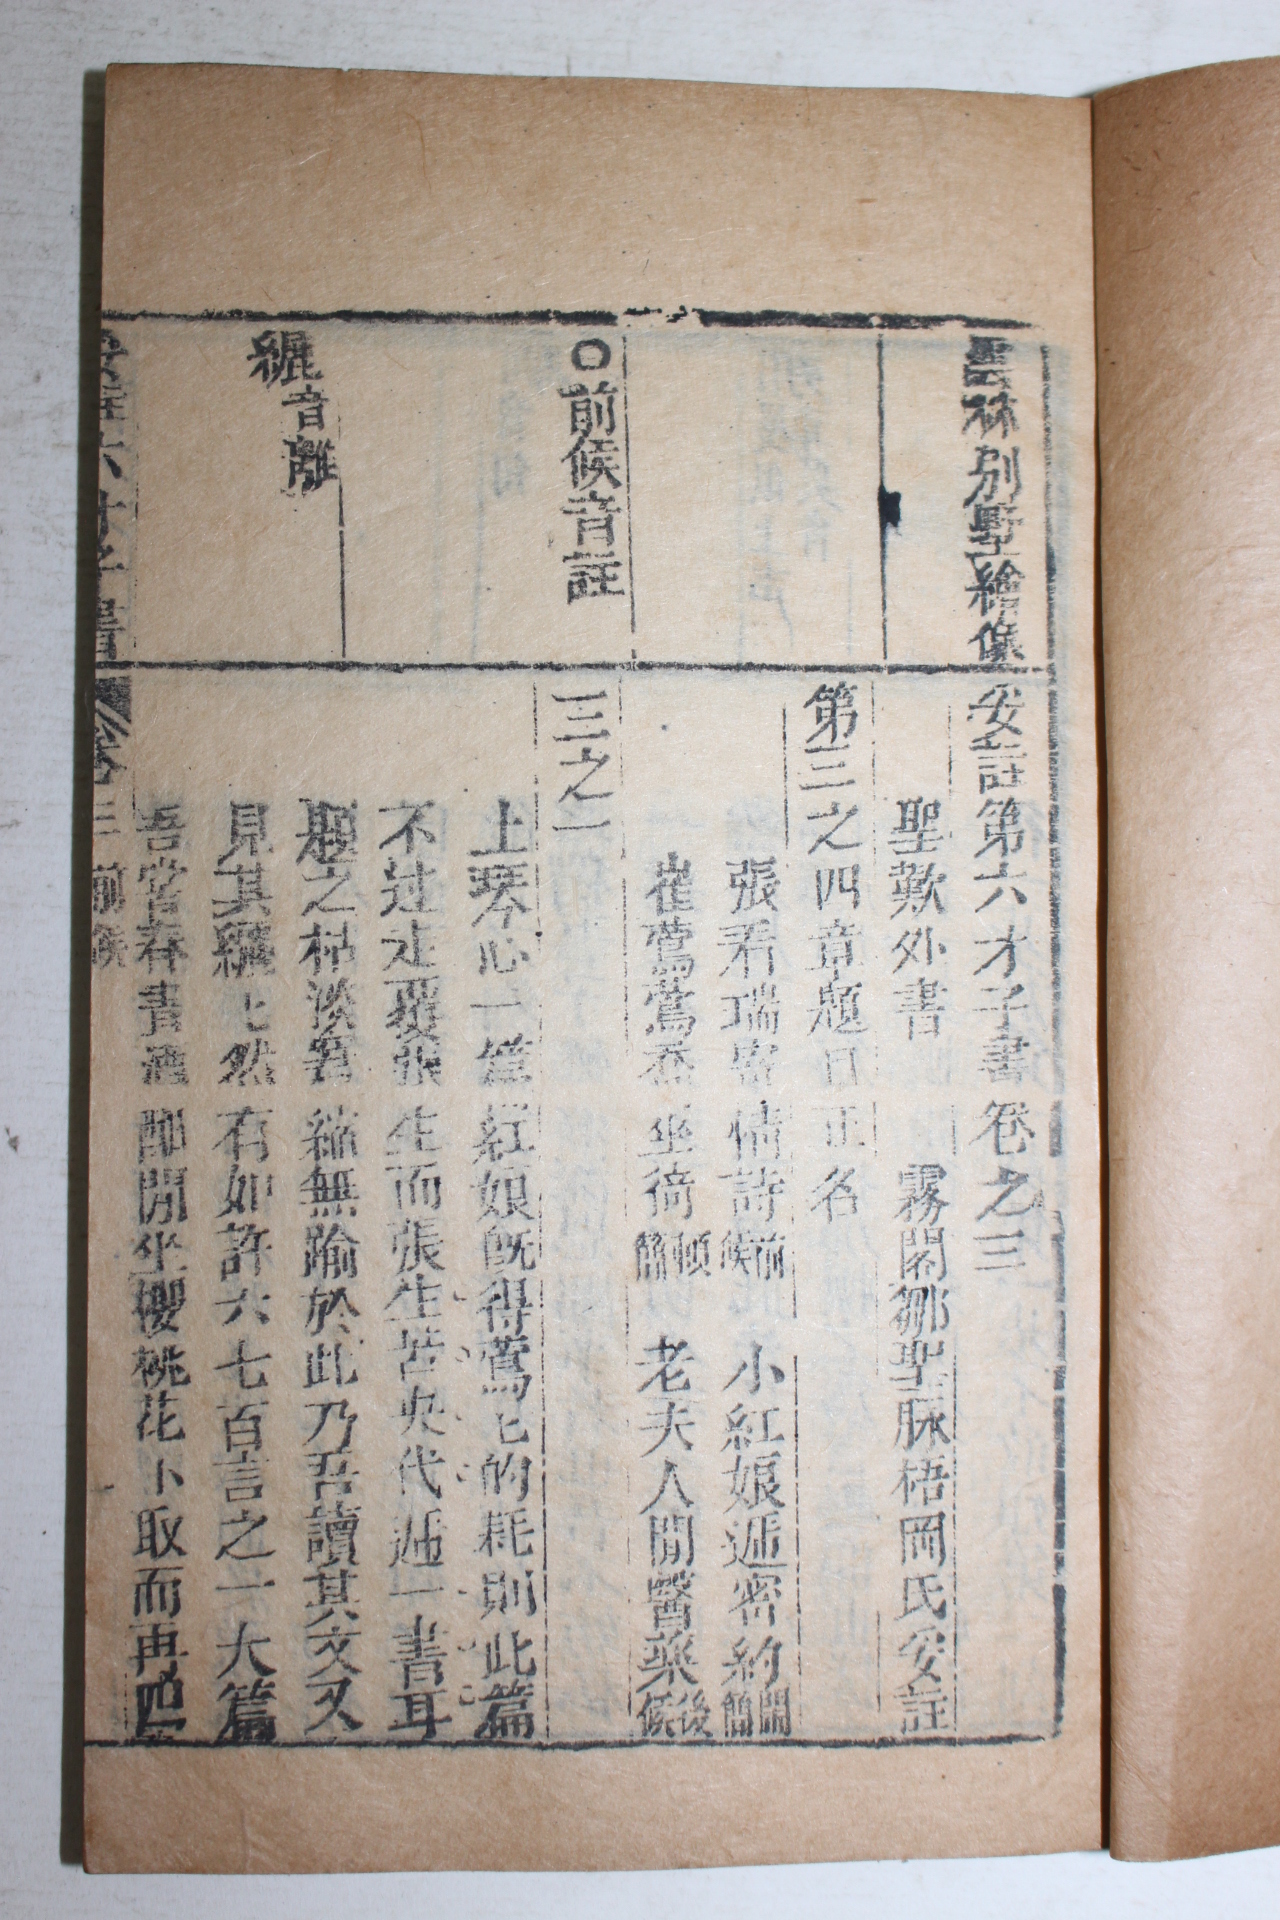 雲林別墅繪像
○前候音註
纚音離
妥註第六才子書卷之三
聖歎外書 霧閣鄒聖脉梧岡氏妥註
第三之四章題目正名
張君瑞寄情詩前候 小紅娘遞密約鬧簡
崔鶯鶯喬坐衙頓簡 老夫人問醫藥後候
三之一
上琴心一篇紅娘旣得鶯匕的耗則此篇
不过走覆張生而張生苦央代遞一書耳
題之枯淡窘縮無踰於此乃吾讀其文又
見其纚匕然有如許六七百言之一大篇
吾嘗春晝酒酣閒坐櫻桃花下取而再四
妥註六才子書 卷三 前候